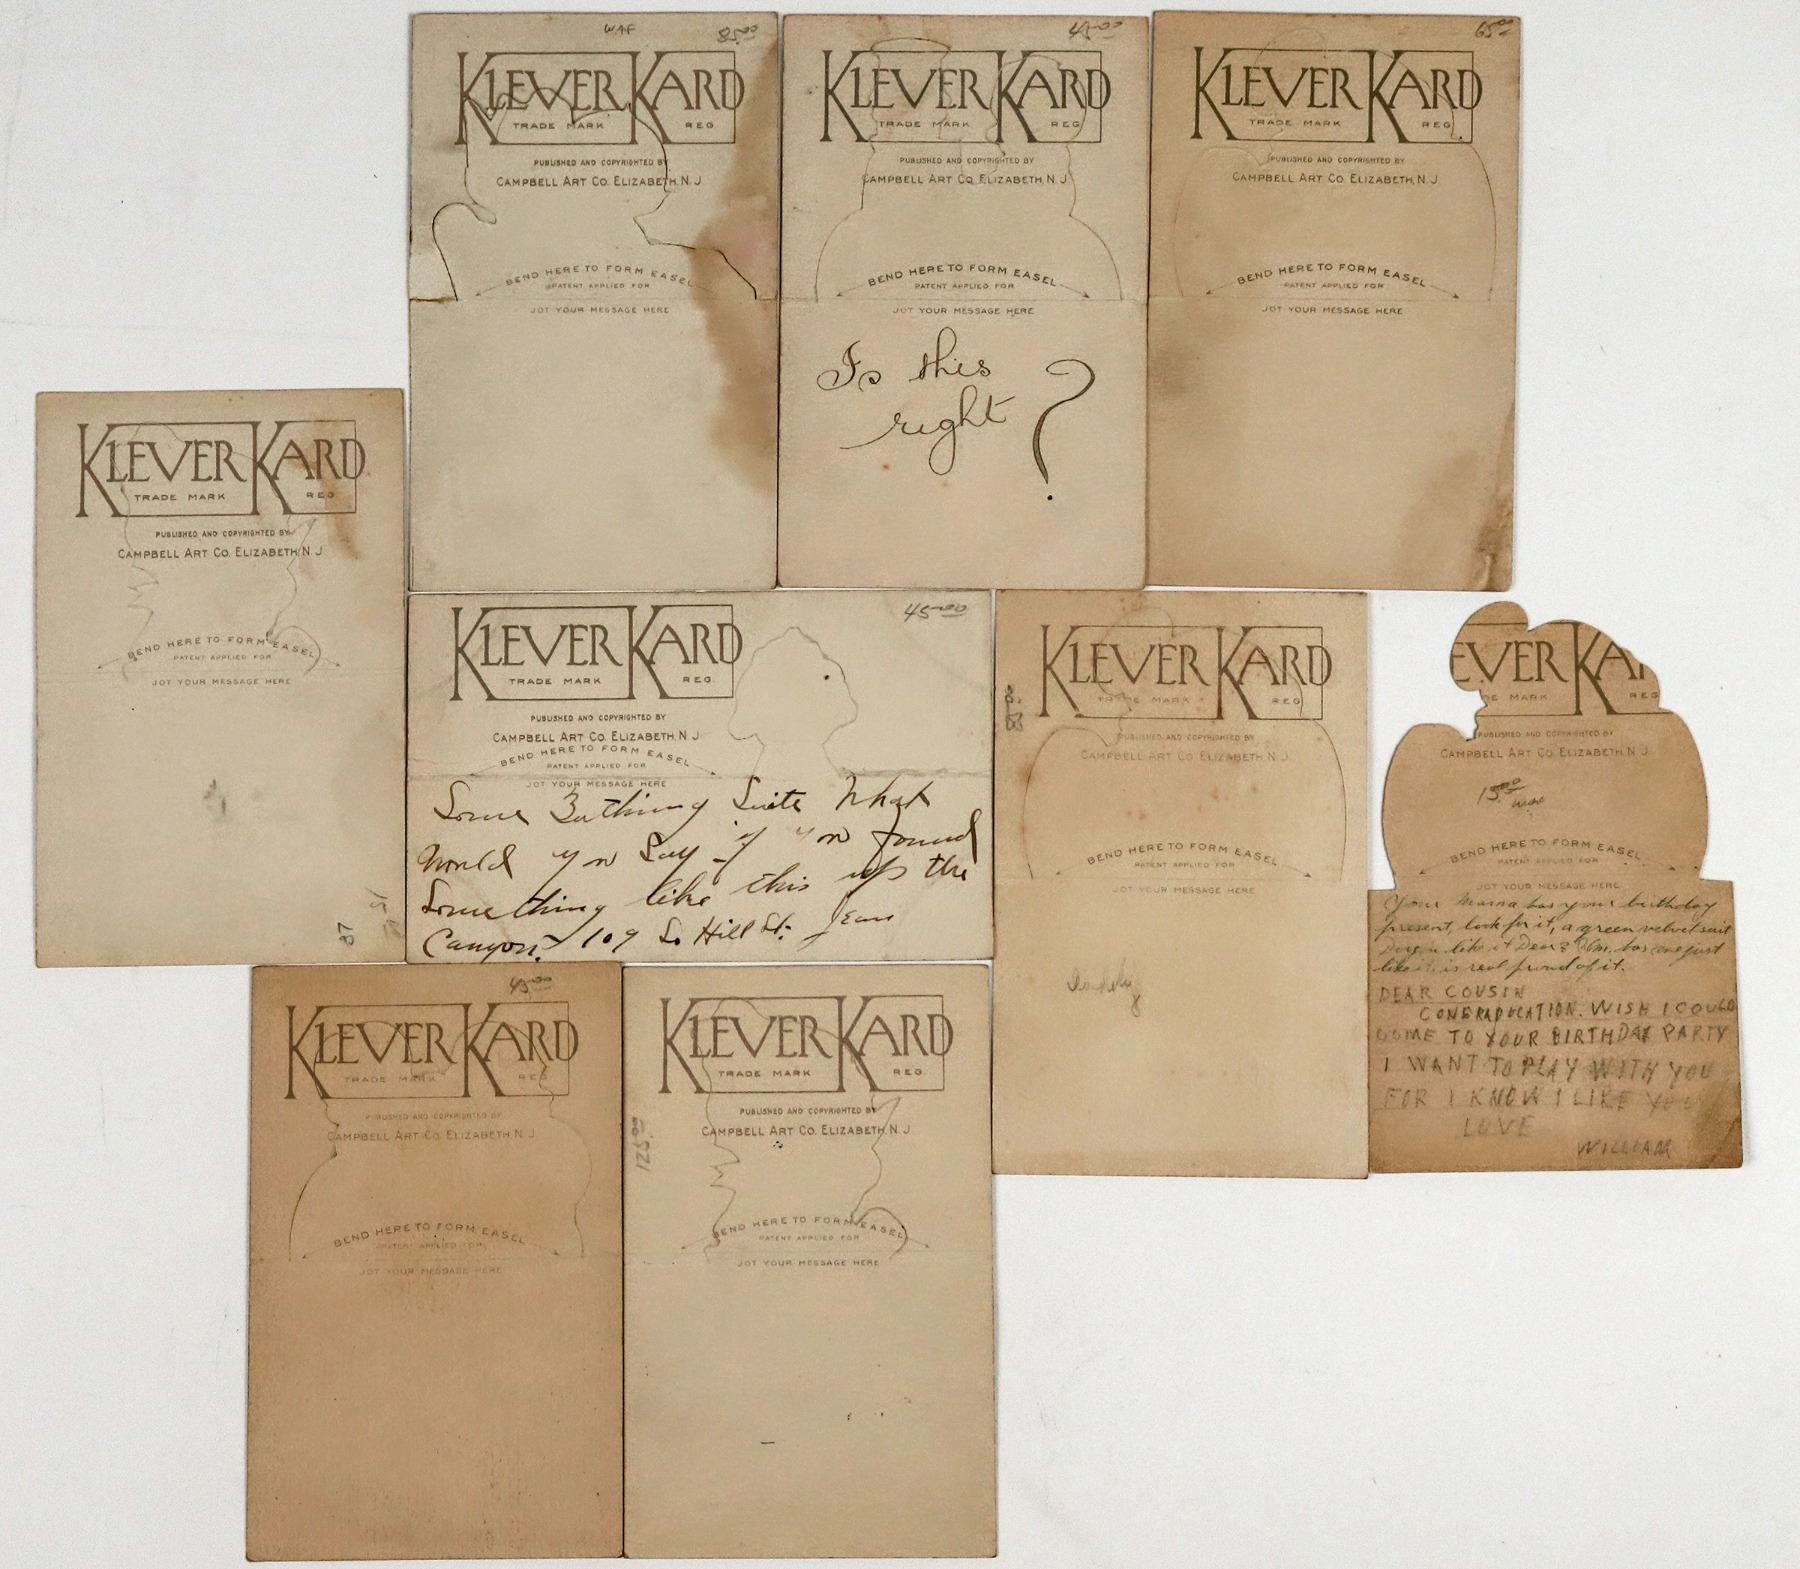 WAF 85.00
KLEVER KARD
TRADE MARK REG.
PUBLISHED AND COPYRIGHTED BY
CAMPBELL ART CO. ELIZABETH, N. J.
BEND HERE TO FORM EASEL
PATENT APPLIED FOR
JOT YOUR MESSAGE HERE
45.00
KLEVER KARD
TRADE MARK REG.
PUBLISHED AND COPYRIGHTED BY
CAMPBELL ART CO. ELIZABETH, N. J.
BEND HERE TO FORM EASEL
PATENT APPLIED FOR
JOT YOUR MESSAGE HERE
Is this
right ?
65.00
KLEVER KARD
TRADE MARK REG.
PUBLISHED AND COPYRIGHTED BY
CAMPBELL ART CO. ELIZABETH, N. J.
BEND HERE TO FORM EASEL
PATENT APPLIED FOR
JOT YOUR MESSAGE HERE
KLEVER KARD
TRADE MARK REG.
PUBLISHED AND COPYRIGHTED BY
CAMPBELL ART CO. ELIZABETH, N. J.
BEND HERE TO FORM EASEL
PATENT APPLIED FOR
JOT YOUR MESSAGE HERE
45.00
KLEVER KARD
TRADE MARK REG.
PUBLISHED AND COPYRIGHTED BY
CAMPBELL ART CO. ELIZABETH, N. J.
BEND HERE TO FORM EASEL
PATENT APPLIED FOR
JOT YOUR MESSAGE HERE
Some Bathing Suite What
Would you Say if you found
Something like this up the
Canyon? 109 So Hill St. Jean
KLEVER KARD
TRADE MARK REG.
PUBLISHED AND COPYRIGHTED BY
CAMPBELL ART CO. ELIZABETH, N. J.
BEND HERE TO FORM EASEL
PATENT APPLIED FOR
JOT YOUR MESSAGE HERE
EVER KA
DE MARK REG
PUBLISHED AND COPYRIGHTED BY
CAMPBELL ART CO. ELIZABETH, N. J.
15.00
BEND HERE TO FORM EASEL
PATENT APPLIED FOR
JOT YOUR MESSAGE HERE
Your Mama has your birthday
present, look for it, a green velvet suit
like it Dear? Wm. has one just
like it is real proud of it.
DEAR COUSIN
CONGRADULATION. WISH I COULD
COME TO YOUR BIRTHDAY PARTY
I WANT TO PLAY WITH YOU
FOR I KNOW I LIKE YOU
LOVE
WILLIAM
45.00
KLEVER KARD
TRADE MARK REG.
PUBLISHED AND COPYRIGHTED BY
CAMPBELL ART CO. ELIZABETH, N. J.
BEND HERE TO FORM EASEL
PATENT APPLIED FOR
JOT YOUR MESSAGE HERE
KLEVER KARD
TRADE MARK REG.
PUBLISHED AND COPYRIGHTED BY
CAMPBELL ART CO. ELIZABETH, N. J.
125.00
BEND HERE TO FORM EASEL
PATENT APPLIED FOR
JOT YOUR MESSAGE HERE